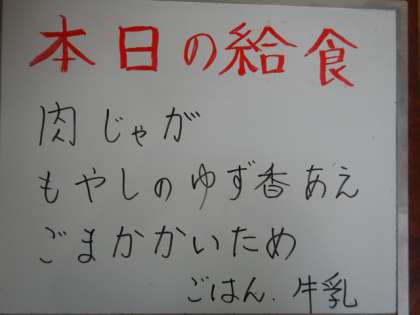 本日の給食
肉じゃが
もやしのゆず香あえ
ごまかかいため
ごはん、牛乳